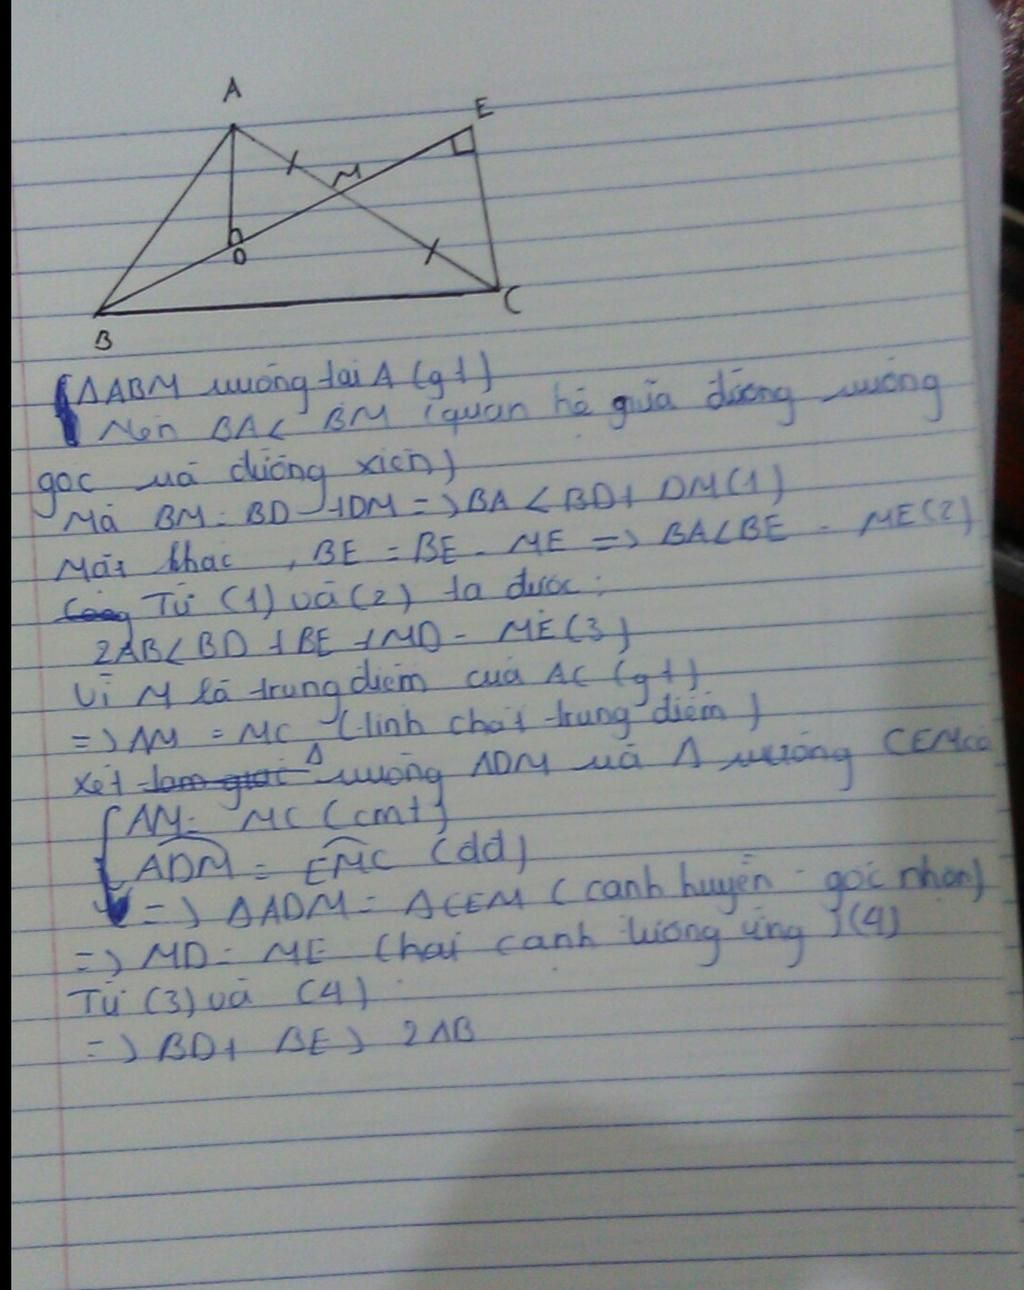 A
E
M
D
B
C
ΔABM vuông tại A (gt)
Nên BA < BM (quan hệ giữa đường vuông
góc và đường xiên)
Mà BM = BD + DM => BA < BD + DM (1)
Mặt khác, BE = BE - ME => BA < BE - ME (2)
Từ (1) và (2) ta được:
2AB < BD + BE + MD - ME (3)
Vì M là trung điểm của AC (gt)
=> AM = MC (tính chất trung điểm)
Xét Δ vuông ADM và Δ vuông CEM có
AM = MC (cmt)
ADM = EMC (dd)
=> ΔADM = ΔCEM (cạnh huyền - góc nhọn)
=> MD = ME (hai cạnh tương ứng) (4)
Từ (3) và (4)
=> BD + BE > 2AB